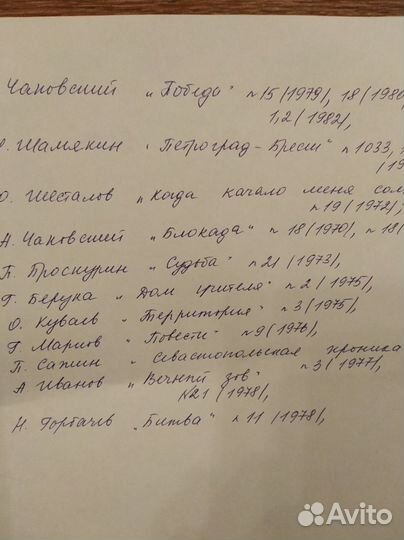 Чаковский „Победа" №15/1979/, 18/1980
1,2/1982/,
Шамякин „Петроград-Брест" №1033,
/19
Ю. Шесталов „Когда качало меня сол
№19/1972/,
А. Чаковский „Блокада" №18/1970/, №18/
П. Проскурин „Судьба" №21/1973/,
Г. Березка „Дом учителя" №2/1975/,
О. Куваев „Территория" №3/1975/,
Г. Марков „Повести" №9/1976/,
П. Сажин „Севастопольская хроника
№3/1977/,
А Иванов „Вечный зов"
№21/1978/,
Н. Горбачев „Битва" №11/1978/,
Avito